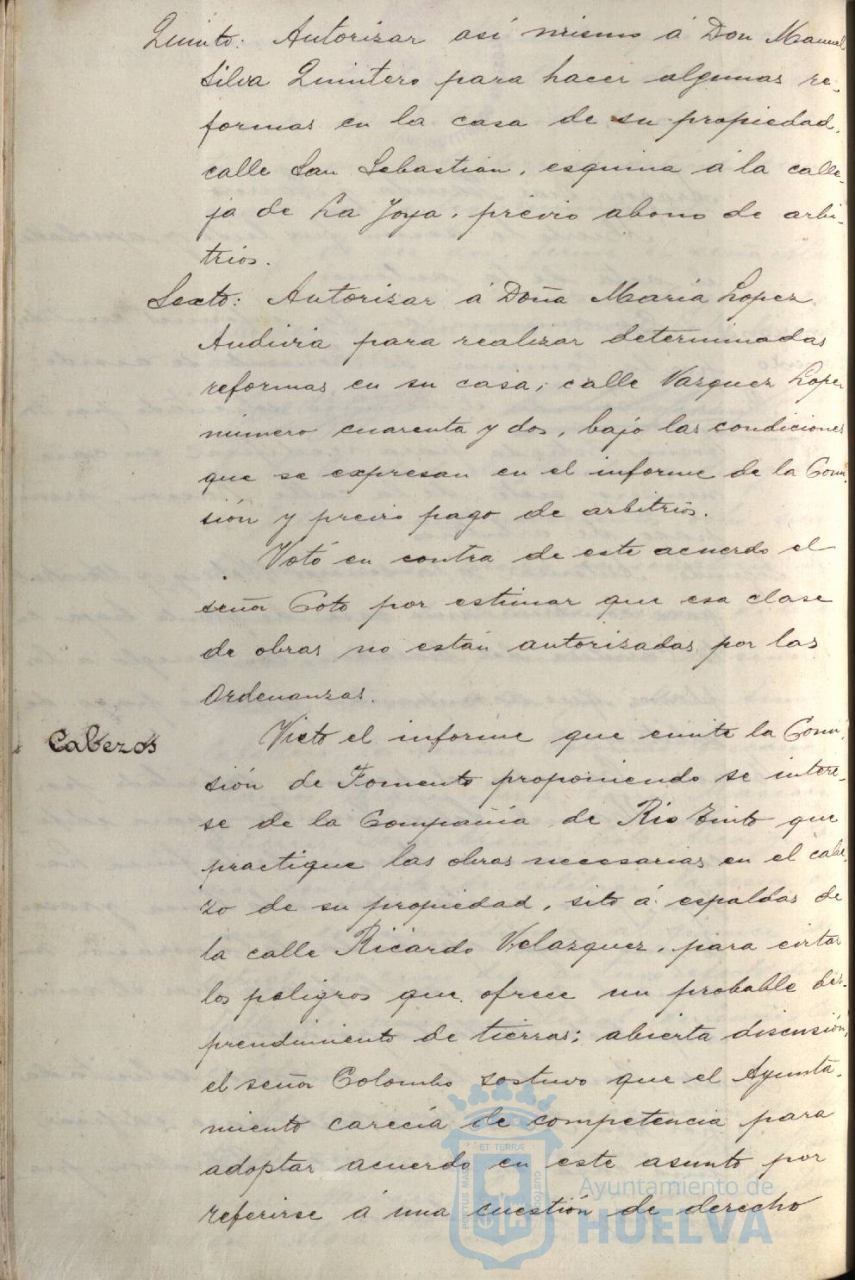 Quinto: Autorizar así mismo á Don Manuel
Silva Quintero para hacer algunas re-
formas en la casa de su propiedad,
calle San Sebastian, esquina á la calle-
ja de La Joya, previo abono de arbi-
trios.
Sexto: Autorizar á Doña Maria Lopez
Audivia para realizar determinadas
reformas en su casa, calle Vazquez Lopez
número cuarenta y dos, bajo las condiciones
que se expresan en el informe de la Comi-
sión y previo pago de arbitrios.
Votó en contra de este acuerdo el
señor Coto por estimar que esa clase
de obras no están autorizadas por las
Ordenanzas.
Cabezos
Visto el informe que emite la Comi-
sión de Fomento proponiendo se intere-
se de la Compañia de Rio Tinto que
practique las obras necesarias en el cabe-
zo de su propiedad, sito á espaldas de
la calle Ricardo Velazquez, para evitar
los peligros que ofrece un probable des-
prendimiento de tierras; abierta discusión,
el señor Colombo sostuvo que el Ayunta-
miento carecía de competencia para
adoptar acuerdo en este asunto por
referirse á una cuestión de derecho
ET TERRAE
PORTUS MARIS
CUSTODIA
Ayuntamiento de
HUELVA